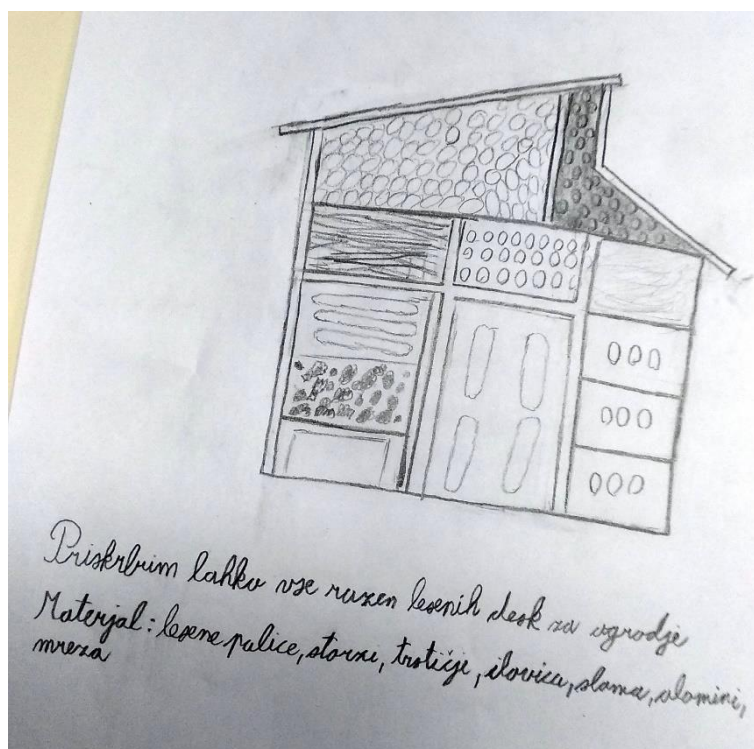 Priskrbim lahko vse razen lesenih desk za ogrodje
Materjal: lesene palice, storži, trstičje, ilovica, slama, slamini,
mreža